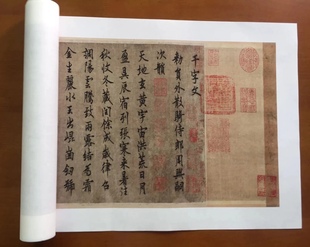 千字文
勅員外散騎侍郎周興嗣
次韻
天地玄黃宇宙洪荒日月
盈昃辰宿列張寒来暑往
秋收冬藏閏餘成歲律召
調陽雲騰致雨露結為霜
金生麗水玉出崐崗劒號